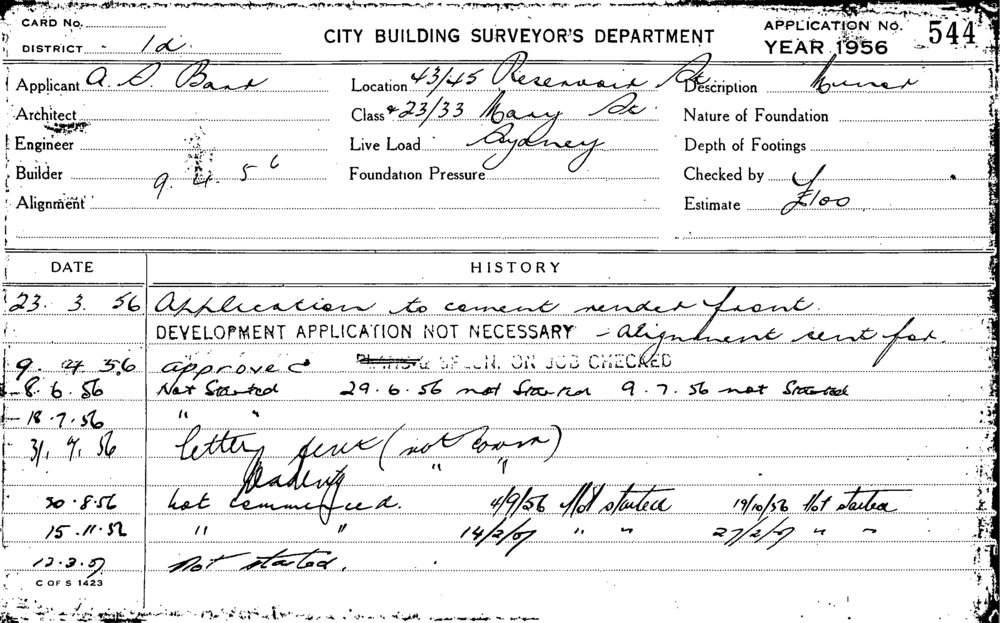 CARD No.
DISTRICT 1d
CITY BUILDING SURVEYOR'S DEPARTMENT
APPLICATION No. 544
YEAR 1956
Applicant A. S.
Location 43/45 Reservoir St
Description
Architect
Class & 23/33 Mary St.
Nature of Foundation
Engineer
Live Load Sydney
Depth of Footings
Builder 9. 4. 56
Foundation Pressure
Checked by
Alignment
Estimate £100
DATE HISTORY
23. 3. 56 Application to cement render front.
DEVELOPMENT APPLICATION NOT NECESSARY - Alignment sent for.
9. 4. 56 approved ON JOB CHECKED
8. 6. 56 Not Started 29. 6. 56 not Started 9. 7. 56 not Started
18. 7. 56 " "
31. 7. 56 letter sent (not comm)
" "
30. 8. 56 Not commenced. 4/9/56 Not started 19/10/56 Not started
15. 11. 56 " " 14/2/57 " " 27/2/57 " "
12. 3. 57 Not started.
C OF S 1423